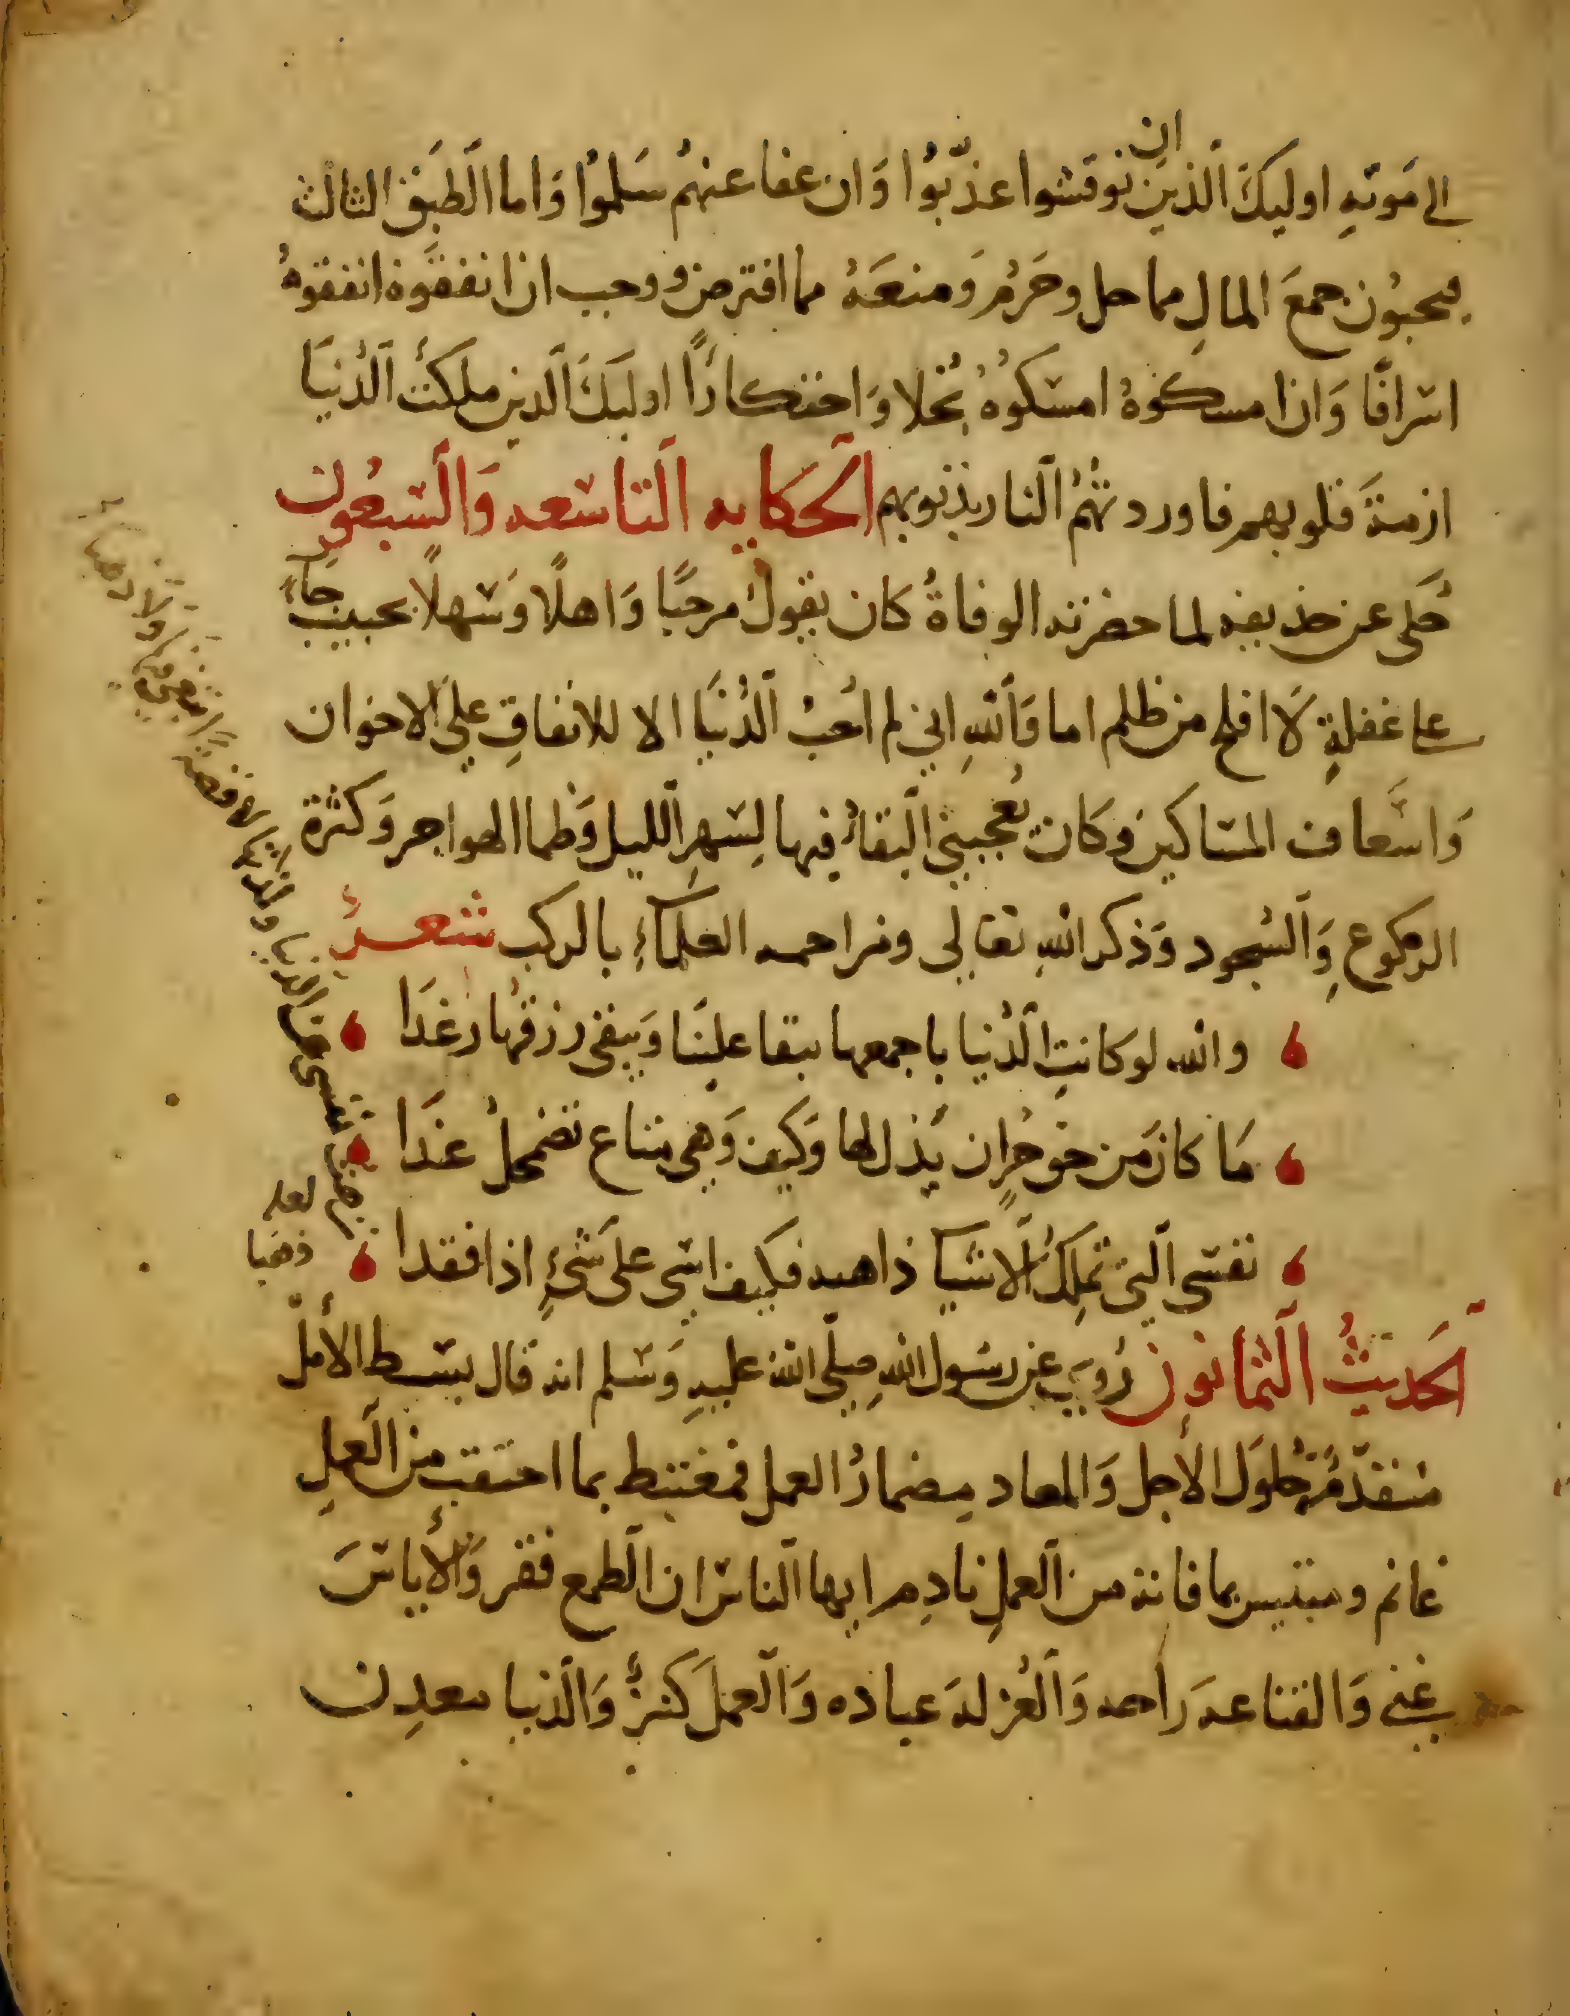 ان
الى مَوتهِ اوليكَ الذين نوقشوا عذّبُوا وَان عفا عنهُم سَلموُا وَاما الطبَق الثالث
فيحبوُن جمعَ المالِ مما حل وحَرُم وَمنعَهُ مما افترض ووجب ان انفقوهُ انفقوهُ
اسرافًا وَان امسكوهُ امسَكوُهُ بُخلا وَاحتكارًا اوليَكَ الذين ملكَتُ الدُنيَا
ازمةَ قلوبهم فاوردتهُمُ النار بذنوبهم الحكايه التاسعه وَالسَبعُون
حُكى عن حذيفه لما حضرته الوفاةُ كان يقولُ مرحبًا وَاهلًا وَسَهلًا بحبيبٍ جَاءَ
على غفلةٍ لَا افلح من ظلم اما وَاللهِ انى لم احُب الدُنيَا الا للانفاقِ على الاخوان
وَاسعَاف المسَاكين وكَان يُعجبنى البقاءُ فيها لِسَهرِ الليل وَظما الهواجر وَكثرة
الركوعِ وَالسُجود وَذكر اللهِ تعالى ومزاحمه العلَماءِ بالركب شعرُ
والله لو كانتِ الدُنيا باجمعها تبقا علينَا وَيبقى رزقُها رغَدَا
مَا كان مَن حق حُرٍ ان يَذل لها وَكيف وَهى متاع تضمحلُ غدَا
نفسَى التى تملِكُ الاشيَا ذاهبه فكيف اسَى علىَ شئٍ اذا فقدا
لعله
ذهبا
الحَديثُ الثمانون رُوىَ عن رسَول اللهِ صلّى الله عليهِ وَسَلم انه قال بسَط الأملُ
متقدّمُ حلوَل الأجل وَالمعاد مضمارُ العمل فمغتبط بما احتقب من العمل
غانم ومبتيس بما فاته من العملِ نادِم ايها الناسَ ان الطمع فقر وَالأياسَ
غنى وَالقناعهَ رَاحه وَالعُزلهَ عباده وَالعملَ كنزٌ وَالدنيا معدِن